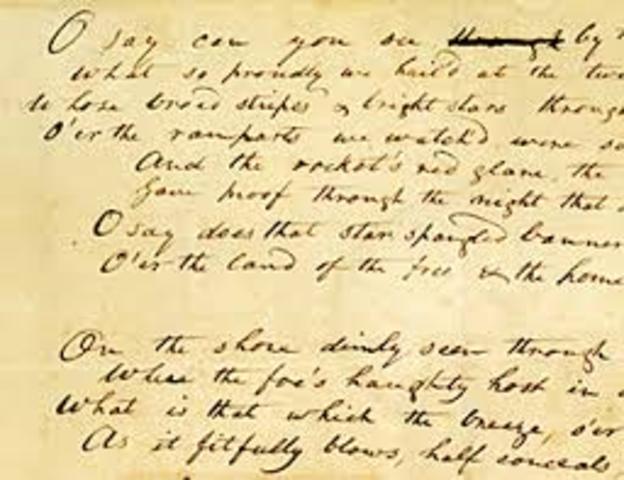 O say can you see ~~through~~ by
What so proudly we hail'd at the
Whose broad stripes & bright stars through
O'er the ramparts we watch'd were
And the rocket's red glare, the
Gave proof through the night that
O say does that star spangled banner
O'er the land of the free & the home
On the shore dimly seen through
Where the foe's haughty host in
What is that which the breeze, o'er
As it fitfully blows, half conceals,